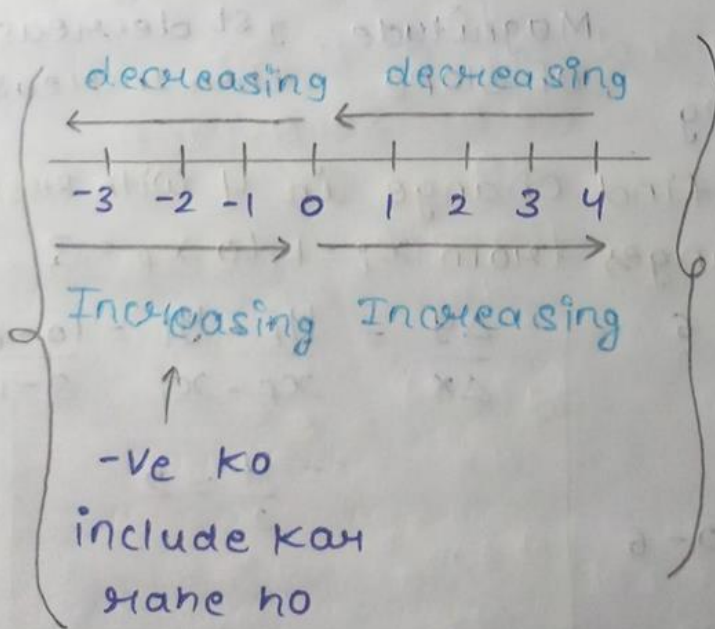 decreasing decreasing
-3 -2 -1 0 1 2 3 4
Increasing Increasing
-ve ko
include kar
rahe ho